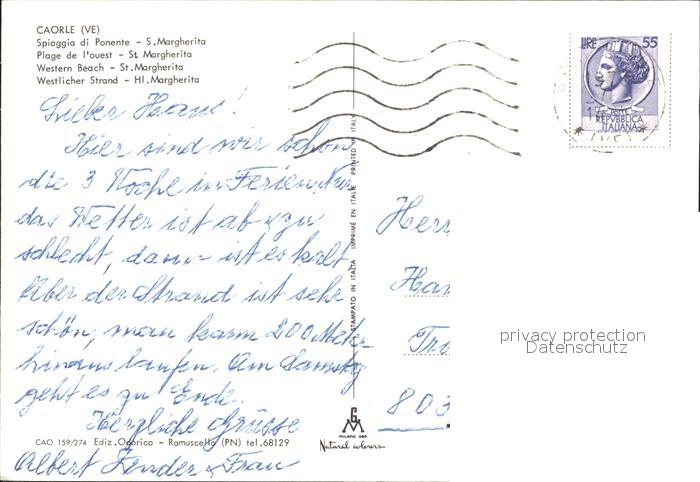 CAORLE (VE)
Spiaggia di Ponente - S. Margherita
Plage de l'ouest - St. Margherita
Western Beach - St. Margherita
Westlicher Strand - Hl. Margherita
Lieber Hans!
Hier sind wir schon
die 3 Woche in Ferien. Nur
das Wetter ist ab & zu
schlecht, dann ist es kalt
Aber der Strand ist sehr
schön, man kann 200 Meter
hinaus laufen. Am Samstag
geht es zu Ende.
Herzliche Grüsse
Albert & Frau
CAO 159/274 Ediz. Odorico - Ramuscello (PN) tel. 68129
STAMPATO IN ITALIA IMPRIMÉ EN ITALIE PRINTED IN ITALY
GM
MILANO
Natural colours
LIRE 55
POSTE
REPVBBLICA
ITALIANA
Herr
Han
803
privacy protection
Datenschutz